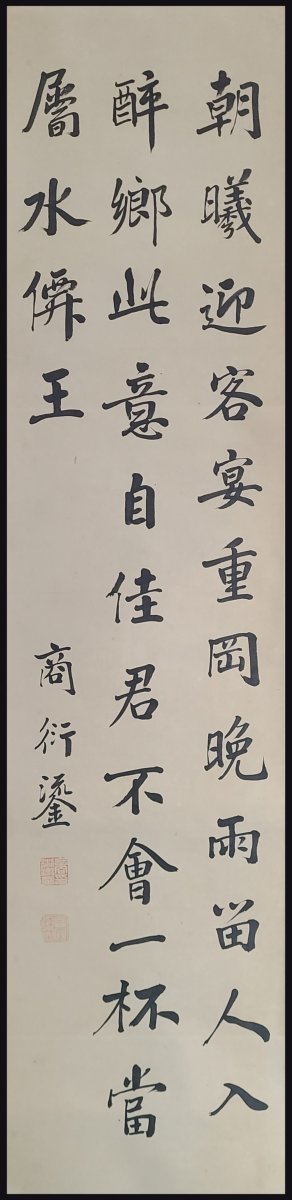 朝曦迎客宴重岡晚雨留人入
醉鄉此意自佳君不會一杯當
屬水僊王
商衍鎏